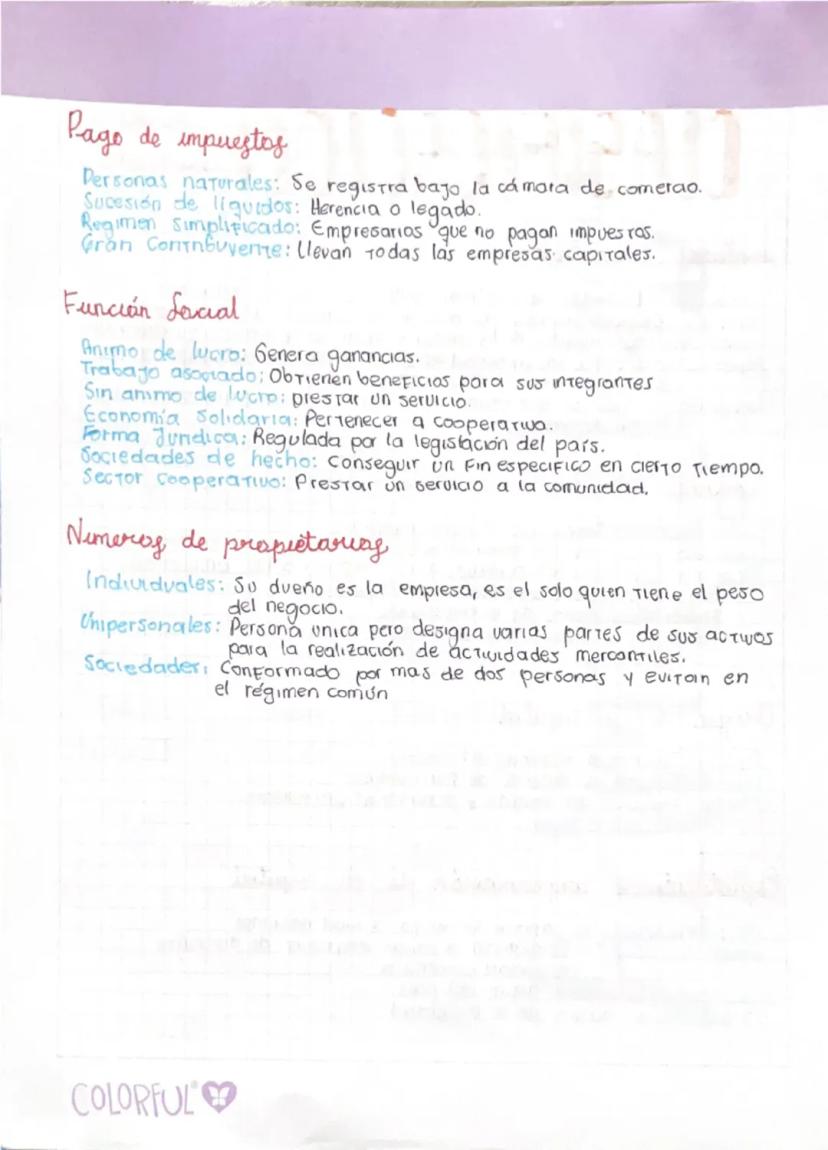 Pago de impuestos
Personas naturales: Se registra bajo la cámara de comercio.
Sucesión de líquidos: Herencia o legado.
Regimen Simplificado: Empresarios que no pagan impuestos.
Gran Contribuyente: Llevan todas las empresas capitales.
Función Social
Animo de lucro: Genera ganancias.
Trabajo asociado: Obtienen beneficios para sus integrantes
Sin animo de lucro: prestar un servicio.
Economía Solidaria: Pertenecer a cooperativa.
Forma Jurídica: Regulada por la legislación del país.
Sociedades de hecho: Conseguir un fin especifico en cierto tiempo.
Sector Cooperativo: Prestar un servicio a la comunidad.
Números de propietarios
Individuales: Su dueño es la empresa, es el solo quien tiene el peso
del negocio.
Unipersonales: Persona unica pero designa varias partes de sus activos
para la realización de actividades mercantiles.
Sociedades: Conformado por mas de dos personas y evitan en
el régimen común
COLORFUL